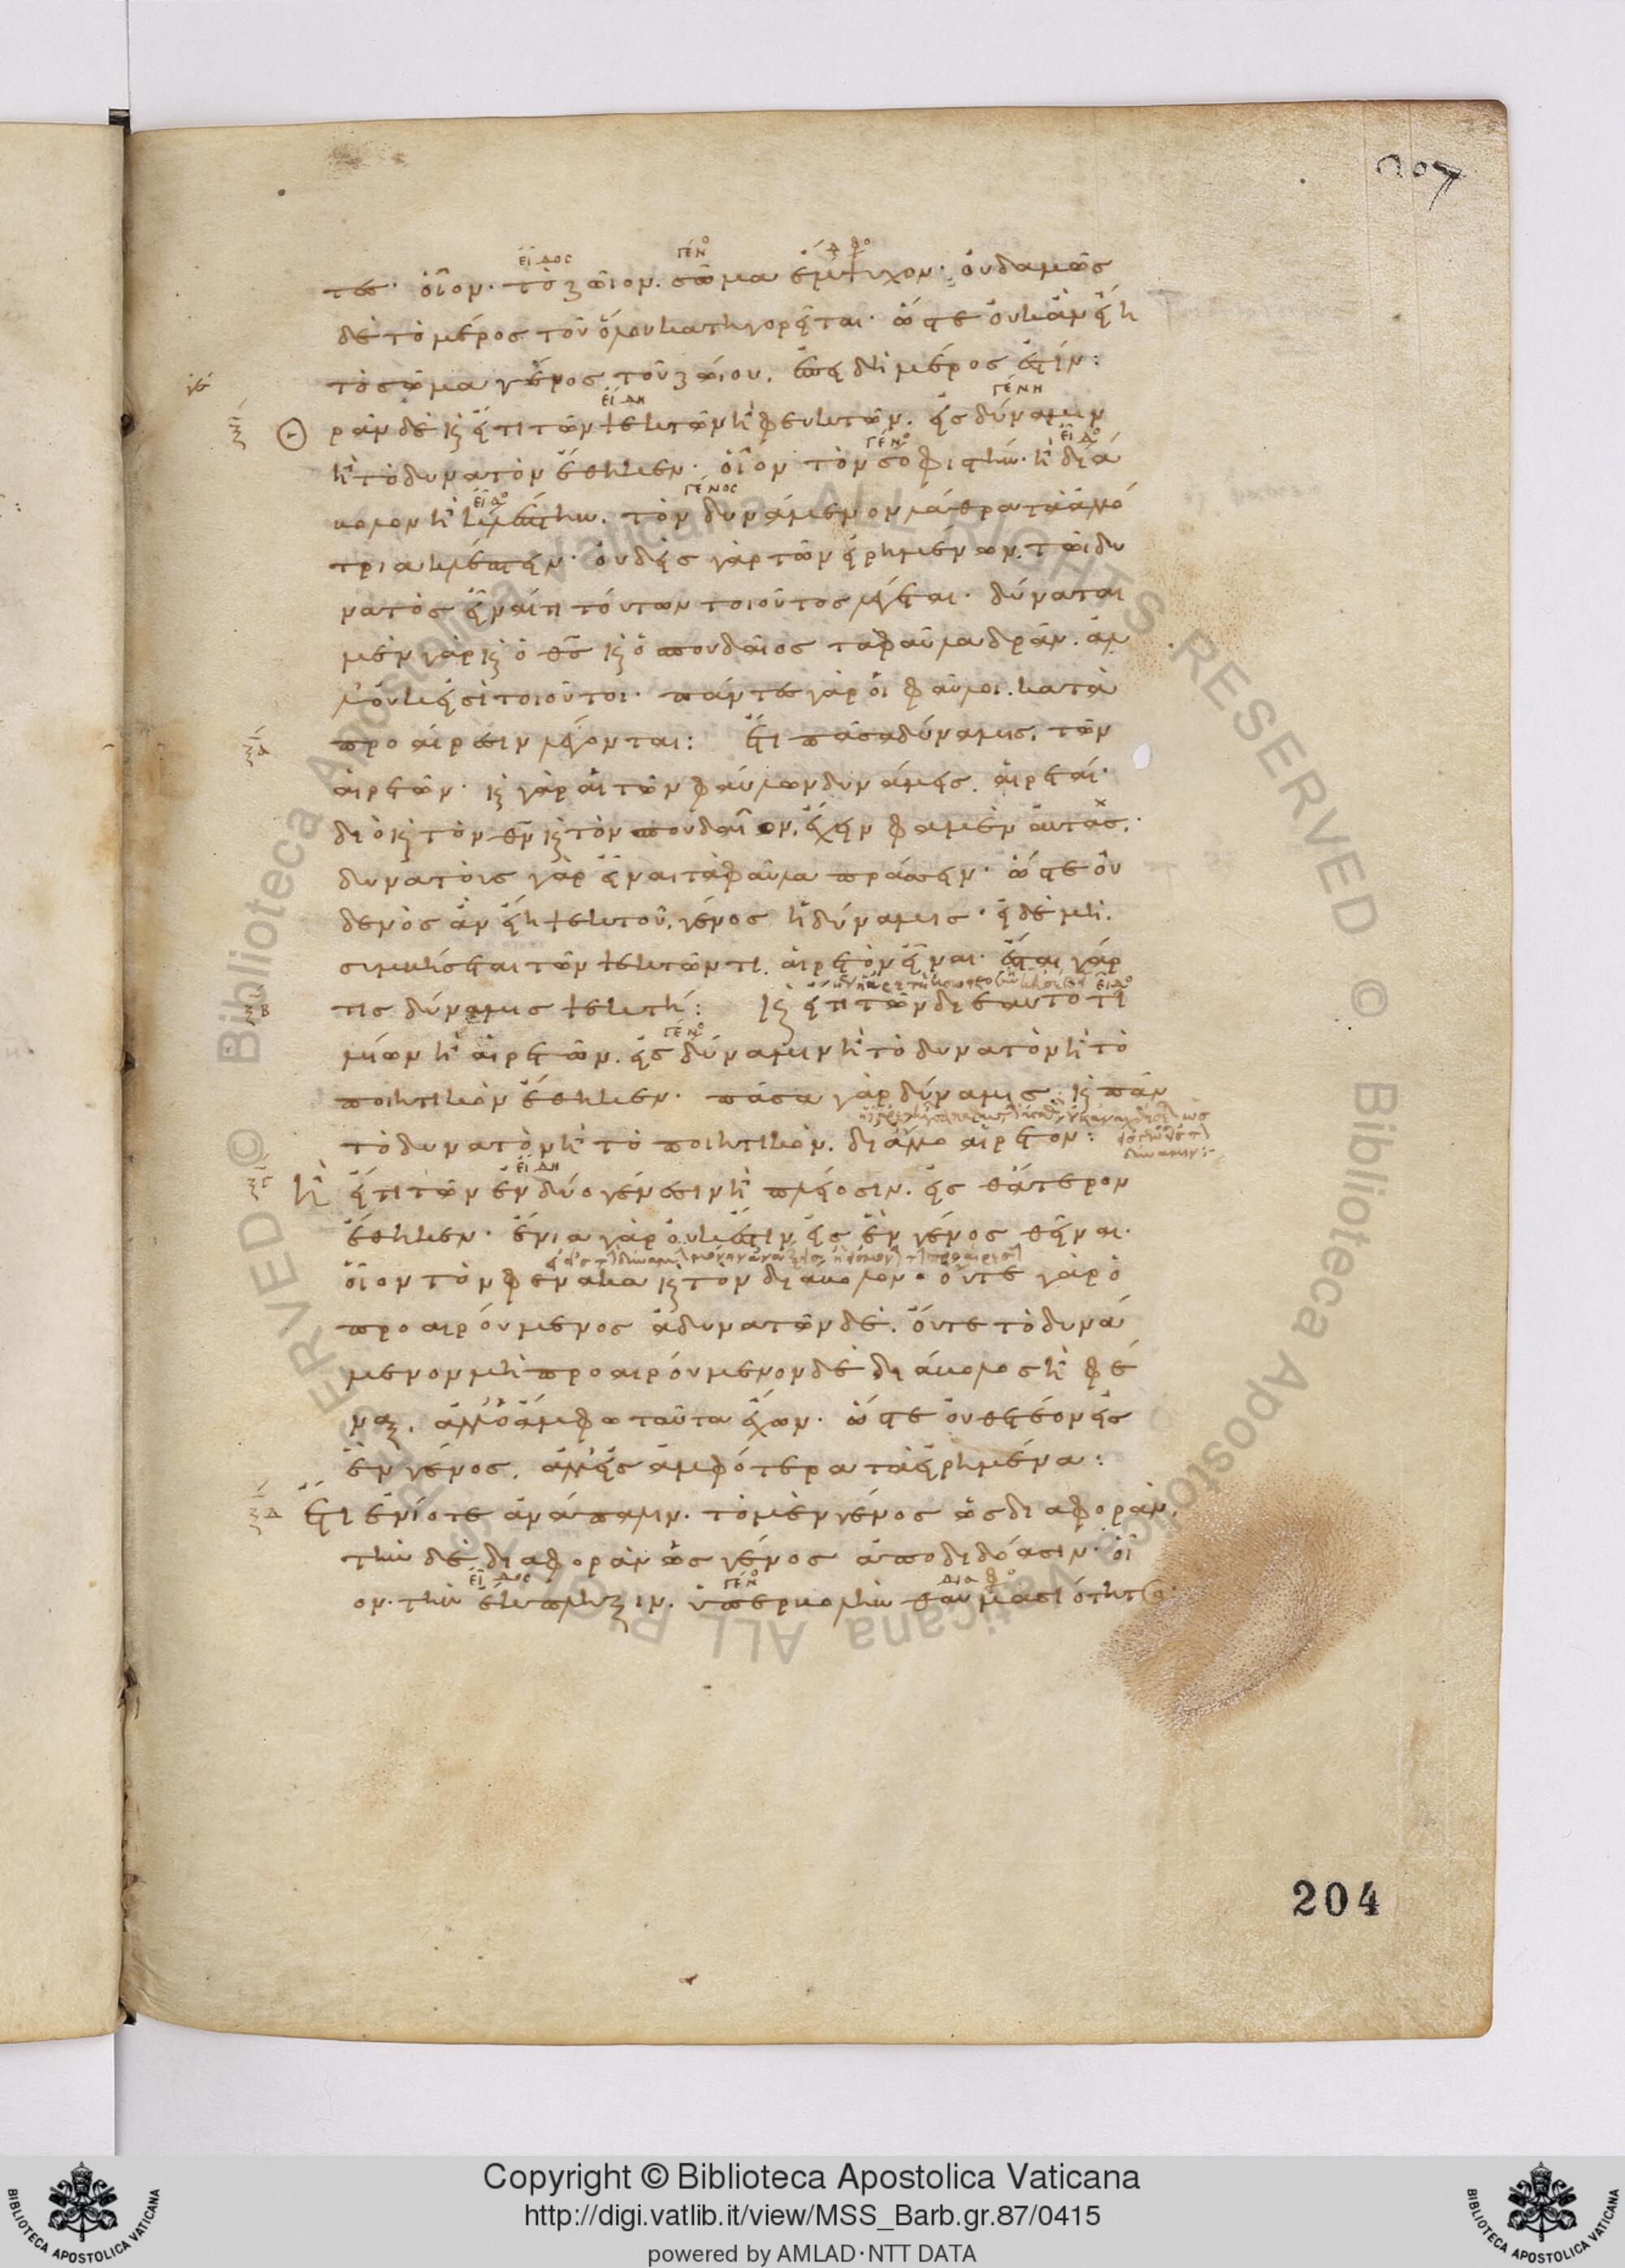 207
ΕΙΔΟC ΓΕΝο Δ Φο
τος· οἷον· τὸ ζῶιον. σῶμα ἔμψυχον· οὐδαμῶς
δὲ τὸ μέρος τοῦ ὅλου κατηγορεῖται· ὥστε οὐκ ἂν εἴη
τὸ σῶμα γένος τοῦ ζώιου. ἐπειδὴ μέρος ἐστίν:
ΕΙΔΗ ΓΕΝΗ
ρᾶν δὲ καὶ εἴ τι τῶν ψεκτῶν ἢ φευκτῶν. εἰς δύναμιν
ΓΕΝο ΕΙΔο
ἢ τὸ δυνατὸν ἔθηκεν· οἷον τὸν σοφιστήν· ἢ διά
ΕΙΔο ΓΕΝΟC
βολον ἢ κλέπτην. τὸν δυνάμενον λάθρα τὰ ἀλλό
τρια κλέπτειν· οὐδεὶς γὰρ τῶν εἰρημένων. τῶι δυ
νατὸς εἶναί τι τούτων τοιοῦτος λέγεται· δύναται
μὲν γὰρ καὶ ὁ θς καὶ ὁ σπουδαῖος τὰ φαῦλα δρᾶν. ἀλ
λ' οὐκ εἰσὶ τοιοῦτοι· πάντες γὰρ οἱ φαῦλοι. κατὰ
προαίρεσιν λέγονται: ἔτι πᾶσα δύναμις. τῶν
αἱρετῶν· καὶ γὰρ αἱ τῶν φαύλων δυνάμεις. αἱρεταί·
διὸ καὶ τὸν θν καὶ τὸν σπουδαῖον. ἔχειν φαμὲν αὐτάς.
δυνατοὺς γὰρ εἶναι τὰ φαῦλα πράσσειν· ὥστε οὐ
δενὸς ἂν εἴη ψεκτοῦ. γένος ἡ δύναμις· εἰ δὲ μὴ.
συμβήσεται τῶν ψεκτῶν τι. αἱρετὸν εἶναι· ἔσται γάρ
ΕΙΔο
τις δύναμις ψεκτή: καὶ εἴ τι τῶν δι' ἑαυτὸ τι
ΓΕΝο
μίων ἢ αἱρετῶν. εἰς δύναμιν ἢ τὸ δυνατὸν ἢ τὸ
ποιητικὸν ἔθηκεν· πᾶσα γὰρ δύναμις. καὶ πᾶν
τὸ δυνατὸν ἢ τὸ ποιητικόν. δι' ἄλλο αἱρετόν:
ΕΙΔΗ
ἢ εἴ τι τῶν ἐν δύο γένεσιν ἢ πλείοσιν. εἰς θάτερον
ἔθηκεν· ἔνια γὰρ οὐκ ἔστιν εἰς ἓν γένος θεῖναι·
οἷον τὸν φένακα καὶ τὸν διάβολον· οὔτε γὰρ ὁ
προαιρούμενος ἀδυνατῶν δέ. οὔτε τὸ δυνά
μενον μὴ προαιρούμενον δέ. διάβολος ἢ φέ
ναξ. ἀλλ' ὁ ἄμφω ταῦτα ἔχων· ὥστε οὐ θετέον εἰς
ἓν γένος. ἀλλ' εἰς ἀμφότερα τὰ εἰρημένα:
ἔτι ἐνίοτε ἀνάπαλιν. τὸ μὲν γένος ὡς διαφορὰν.
τὴν δὲ διαφορὰν ὡς γένος ἀποδιδόασιν· οἷ
ΕΙΔΟC ΓΕΝο ΔΙΑΦο
ον· τὴν ἔκπληξιν. ὑπερβολὴν θαυμασιότητος·
204
Copyright © Biblioteca Apostolica Vaticana
http://digi.vatlib.it/view/MSS_Barb.gr.87/0415
powered by AMLAD·NTT DATA
BIBLIOTECA APOSTOLICA VATICANA
BIBLIOTECA APOSTOLICA VATICANA